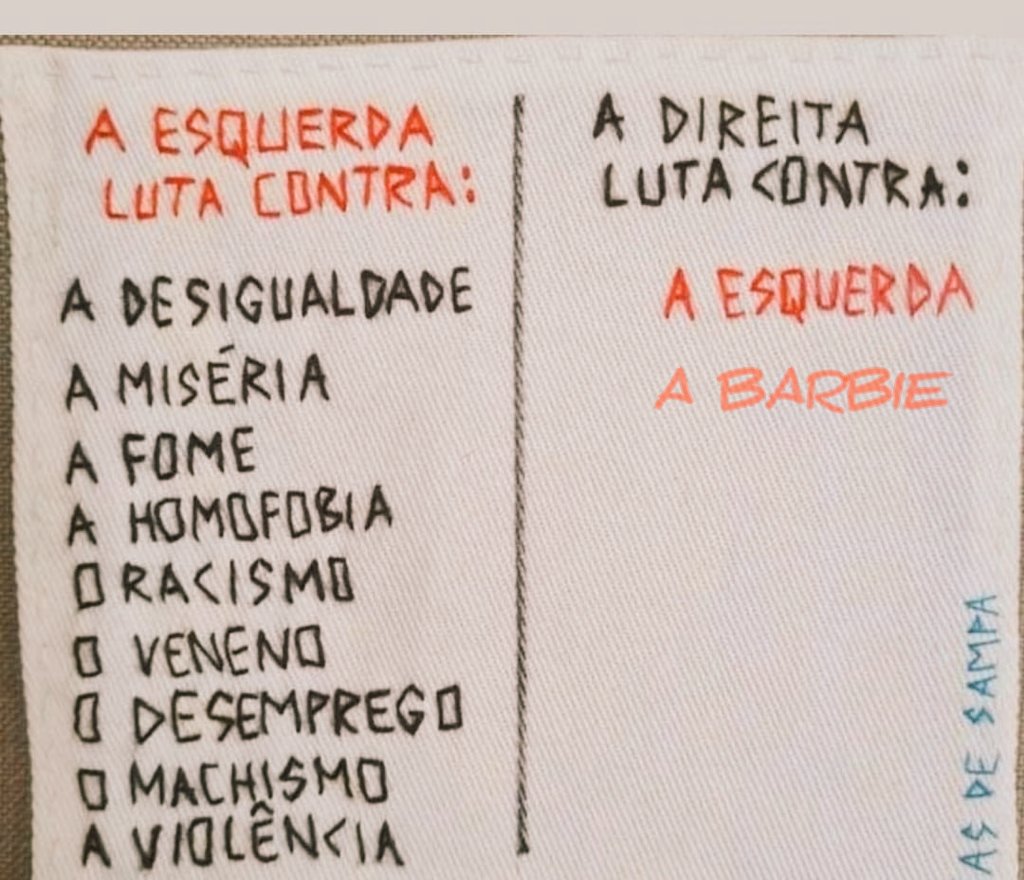 A ESQUERDA
LUTA CONTRA:
A DESIGUALDADE
A MISÉRIA
A FOME
A HOMOFOBIA
O RACISMO
O VENENO
O DESEMPREGO
O MACHISMO
A VIOLÊNCIA
A DIREITA
LUTA CONTRA:
A ESQUERDA
A BARBIE
AS DE SAMPA